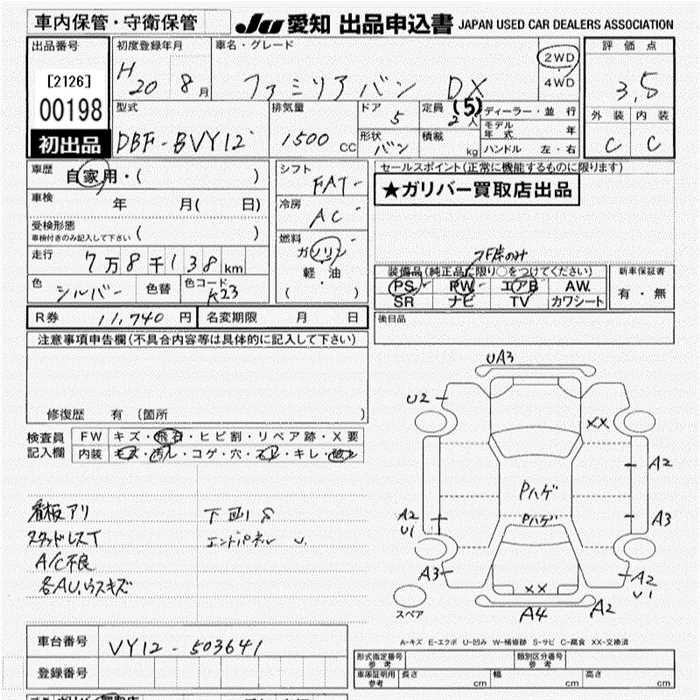 車内保管・守衛保管 JU 愛知 出品申込書 JAPAN USED CAR DEALERS ASSOCIATION
出品番号 初度登録年月 車名・グレード 評価点
[2126] H 20 8月 ファミリアバン DX 2WD・4WD 3.5
00198 型式 排気量 ドア 定員 ディーラー・並行 外装 内装
DBF-BVY12 1500cc 5 (5) 2人 モデル年式 年 C C
初出品 形状 バン 積載 kg ハンドル 左・右
車歴 自家用・( ) シフト FAT セールスポイント(正常に機能するものに限ります)
車検 年 月( 日) 冷房 AC ★ガリバー買取店出品
受検形態 車検付きのみ記入して下さい ( ) 燃料 ガソリン
走行 7万8千138km 軽・油 装備品(純正品に限り○をつけてください) 新車保証書
色 シルバー 色替 色コード K23 ( ) PS PW エアB AW. 有・無
SR ナビ TV カワシート
R券 11,740円 名変期限 月 日 後日品
注意事項申告欄(不具合内容等は具体的に記入して下さい)
修復歴 有 (箇所 )
検査員 FW キズ・飛石・ヒビ割・リペア跡・X要
記入欄 内装 キズ・汚レ・コゲ・穴・スレ・キレ・破レ
UA3
U2
XX
A2
Pハゲ
A2 U1 Pハゲ A3
A3 A2 U1
XX
スペア A4 A2
看板アリ 下回りS
スタッドレスT エンドパネル U.
A/C不良
各AU.ウスキズ
A-キズ E-エクボ U-凹み W-補修跡 S-サビ C-腐食 XX-交換済
車台番号 VY12-503641
登録番号
形式指定番号 参考 類別区分番号 参考
車庫証明用 参考 長さ cm 幅 cm 高さ cm